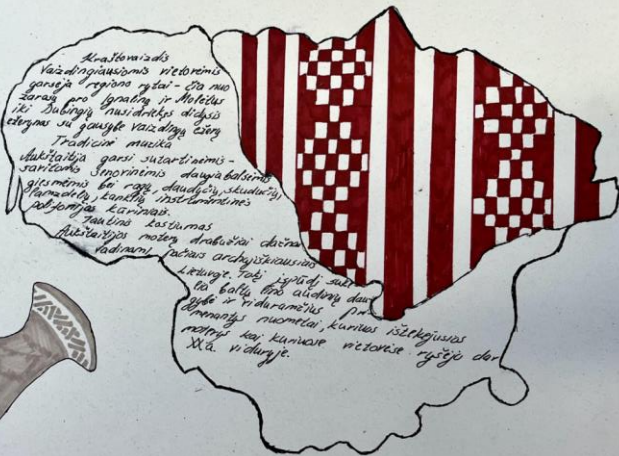 Kraštovaizdis
Vaizdingiausiomis vietovėmis
garsėja regiono rytai - čia nuo
Zarasų pro Ignaliną ir Molėtus
iki Dubingių nusidriekęs didysis
ežerynas su gausybe vaizdingų ežerų
Tradicinė muzika
Aukštaitija garsi sutartinėmis -
savitomis senovinėmis daugiabalsėmis
giesmėmis bei ragų, daudyčių, skudučių,
lamzdelių, kanklių instrumentinės
polifonijos kūriniais.
Tautinis kostiumas
Aukštaitijos moterų drabužiai dažnai
vadinami pačiais archajiškiausiais
Lietuvoje. Tokį įspūdį
čia baltų lino audinių
gybė ir viduramžius
menantys nuometai, kuriuos ištekėjusios
moterys kai kuriose vietovėse ryšėjo dar
XX a. viduryje.